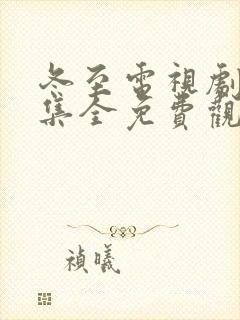 冬至電視劇
集全免費觀
禎曦